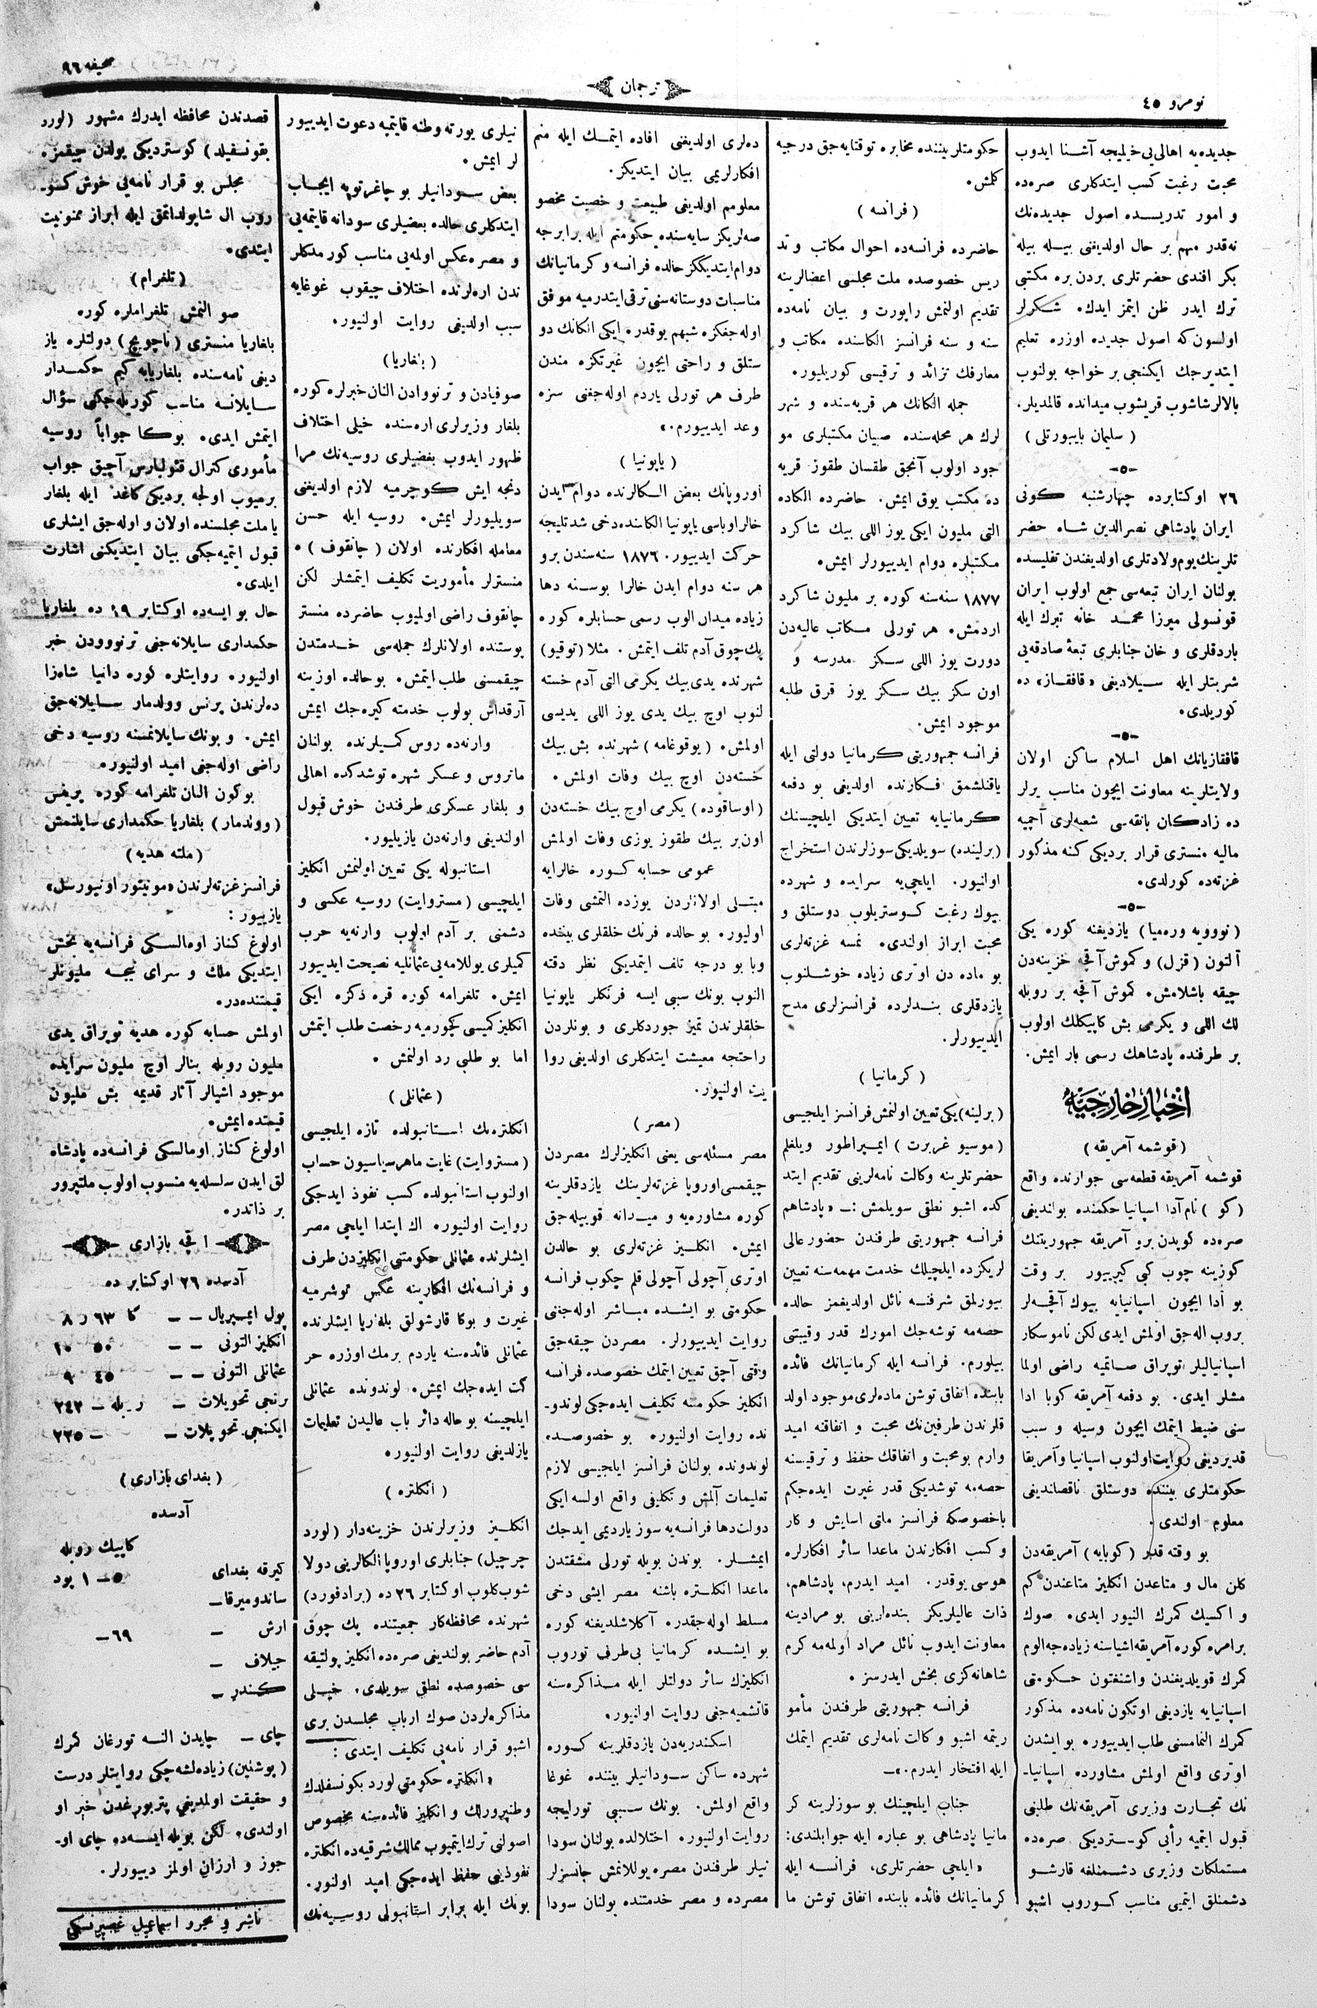 نومرو ٤٥
ترجمان
صحیفه ٩٦
جدیده‌یه اهالی‌یی خیلیجه آشنا ایدوب
محبت رغبت کسب ایتدکلری صره‌ده
و امور تدریسده اصول جدیده‌نك
نه‌قدر مهم بر حال اولدیغنی بیله بیله
بکر افندی حضرتلری بردن بره مکتبی
ترك ایدر ظن ایتمز ایدك. شکرلر
اولسون که اصول جدیده اوزره تعلیم
ایتدیرجك ایکنجی بر خواجه بولنوب
بالالر شاشوب قریشوب میدانده قالمدیلر.
(سلیمان بایبورتلی)
٢٦ اوکتابرده چهارشنبه کونی
ایران پادشاهی نصرالدین شاه حضر
تلرینك یوم ولادتلری اولدیغندن تفلیسده
بولنان ایران تبعه‌سی جمع اولوب ایران
قونسولی میرزا محمد خانه تبرك ایله
باردقلری و خان جنابلری تبعهٔ صادقه‌یی
شربتلر ایله سیلادیغی «قافقاز» ده
کوریلدی.
قافقازیانك اهل اسلام ساکن اولان
ولایتلرینه معاونت ایچون مناسب یرلر
ده زادکان بانقه‌سی شعبه‌لری آچمیه
مالیه منستری قرار بردیکی کنه مذکور
غزته‌ده کورلدی.
(نوویه وره‌میا) یازدیغنه کوره یکی
آلتون (قزل) و کموش آقچه خزینه‌دن
چیقه باشلامش. کموش آقچه بر روبله
لك اللی و یکرمی بش کاپیکلك اولوب
بر طرفنده پادشاهك رسمی بار ایمش.
اخبار خارجیه
(قوشمه آمریقه)
قوشمه آمریقه قطعه‌سی جوارنده واقع
(کو) نام آدا اسپانیا حکمنده بولندیغی
صره‌ده کوپدن برو آمریقه جمهوریتنك
کوزینه چوب کبی کیرییور بر وقت
بو آدا ایچون اسپانیایه بیوك آقچه‌لر
بروب اله‌جق اولمش ایدی لکن ناموسکار
اسپانیالیلر توپراق صاتمیه راضی اولما
مشلر ایدی. بو دفعه آمریقه کوبا ادا
سنی ضبط ایتمك ایچون وسیله و سبب
قدیردیغی روایت اولنوب اسپانیا و آمریقا
حکومتلری بیننده دوستلق ناقصلندیغی
معلوم اولندی.
بو وقته قدر (کوبایه) آمریقه‌دن
کلن مال و متاعدن انکلیز متاعندن کم
و اکسیك کمرك النیور ایدی. صوك
برامره کوره آمریقه اشیاسنه زیاده‌جه الوم
کمرك قویلدیغندن واشنغتون حکومتی
اسپانیایه یازدیغی اوتکون نامه‌ده مذکور
کمرك النمامسنی طلب ایدییوره. بو ایشدن
اوتری واقع اولمش مشاوره‌ده اسپانیا-
نك تجارت وزیری آمریقه‌نك طلبنی
قبول ایتمیه رأیی کوستردیکی صره‌ده
مستملکات وزیری دشمنلغه قارشو
دشمنلق ایتمیی مناسب کوروب اشبو
حکومتلر بیننده مخابره توقتایه‌جق درجیه
کلمش.
(فرانسه)
حاضرده فرانسه‌ده احوال مکاتب و تد
ریس خصوصده ملت مجلسی اعضالرینه
تقدیم اولنمش راپورت و بیان نامه‌ده
سنه و سنه فرانسز الکاسنده مکاتب و
معارفك تزائد و ترقیسی کوریلیور.
جمله الکانك هر قریه‌نده و شهر
لرك هر محله‌سنده صبیان مکتبلری مو
جود اولوب آنجق طقسان طقوز قریه
ده مکتب یوق ایمش. حاضرده الکاده
التی ملیون ایکی یوز اللی بیك شاکرد
مکتبلره دوام ایدییورلر ایمش.
١٨٧٧ سنه‌سنه کوره بر ملیون شاکرد
اردمش. هر تورلی مکاتب عالیه‌دن
دورت یوز اللی سکز مدرسه و
اون سکز بیك سکز یوز قرق طلبه
موجود ایمش.
فرانسه جمهوریتی کرمانیا دولتی ایله
یاقنلشمق فکارنده اولدیغی بو دفعه
کرمانیایه تعیین ایتدیکی ایلچیسنك
(برلینده) سویلدیکی سوزلرندن استخراج
اولنیور. ایلچی‌یه سرایده و شهرده
بیوك رغبت کوستریلوب دوستلق و
محبت ابراز اولندی. نمسه غزته‌لری
بو ماده‌دن اوتری زیاده خوشلنوب
یازدقلری بندلرده فرانسزلری مدح
ایدییورلر.
(کرمانیا)
(برلینه) یکی تعیین اولنمش فرانسز ایلجیسی
(موسیو غربرت) ایمپراطور ویلغلم
حضرتلرینه وکالت نامه‌لرینی تقدیم ایتد
کده اشبو نطقی سویلمش: — «پادشاهم
فرانسه جمهوریتی طرفندن حضور عالی
لریکزده ایلچیلك خدمت مهمه‌سنه تعیین
بیورلمق شرفنه نائل اولدیغمز حالده
حصه‌مه توشه‌جك امورك قدر وقیتنی
بیلورم. فرانسه ایله کرمانیانك فائده
بابنده اتفاق توشن ماده‌لری موجود اولد
قلرندن طرفین‌نك محبت و اتفاقنه امید
وارم بو محبت و انفاقك حفظ و ترقیسنه
حصه‌مه توشدیکی قدر غیرت ایده‌جکم
باخصوصکه فرانسز ملتی اسایش و کار
وکسب افکارندن ماعدا سائر افکارلره
هوسی یوقدر. امید ایدرم، پادشاهم،
ذات عالیلریکز بنده‌لرینی بو مرادینه
معاونت ایدوب نائل مراد اولمه‌مه کرم
شاهانه‌کزی بخش ایدرسز.
فرانسه جمهوریتی طرفندن مأمو
ریتمه اشبو وکالت نامه‌لری تقدیم ایتمك
ایله افتخار ایدرم.»—
جناب ایلچینك بو سوزلرینه کر
مانیا پادشاهی بو عباره ایله جوابلندی:
«ایلچی حضرتلری، فرانسه ایله
کرمانیانك فائده بابنده اتفاق توشن ما
ده‌لری اولدیغنی افاده ایتمك ایله منم
افکارلریمی بیان ایتدیکز.
معلومم اولدیغی طبیعت و خصیت مخصو
صه‌لریکز سایه‌سنده حکومتم ایله برابرجه
دوام ایتدیککز حالده فرانسه و کرمانیانك
مناسبات دوستانه‌سنی ترقی ایتدرمیه موفق
اوله‌جغکزه شبهم یوقدر. ایکی الکانك دو
ستلق و راحتی ایچون غیرتکزه مندن
طرف هر تورلی یاردم اوله‌جغنی سزه
وعد ایدییورم.»
(یاپونیا)
اوروپانك بعض الکالرنده دوام ایدن
خالر اوباسی یاپونیا الکاسنده دخی شدتلیجه
حرکت ایدییور. ١٨٧٦ سنه‌سندن برو
هر سنه دوام ایدن خالرا بو سنه دها
زیاده میدان الوب رسمی حسابلره کوره
پك چوق آدم تلف ایتمش. مثلا (توقیو)
شهرنده یدی بیك یکرمی التی آدم خسته
لنوب اوچ بیك یدی یوز اللی یدیسی
اولمش. (یوقوغامه) شهرنده بش بیك
خسته‌دن اوچ بیك وفات اولمش.
(اوساقوده) یکرمی اوچ بیك خسته‌دن
اون بر بیك طقوز یوزی وفات اولمش
عمومی حسابه کوره خالرایه
مبتلی اولانلردن یوزده التمشی وفات
اولیور. بو حالده فرنك خلقلری بیننده
وبا بو درجه تلف ایتمدیکی نظر دقته
النوب بونك سببی ایسه فرنکلر یاپونیا
خلقلرندن تمیز جوردکلری و بونلردن
راحتجه معیشت ایتدکلری اولدیغی روا
یت اولنیور.
(مصر)
مصر مسئله‌سی یعنی انکلیزلرك مصردن
چیقمسی اوروپا غزته‌لرینك یازدقلرینه
کوره مشاوره‌یه و میدانه قوییله‌جق
ایمش. انکلیز غزته‌لری بو حالدن
اوتری آچولی آچولی قلم چکوب فرانسه
حکومتی بو ایشده مباشر اوله‌جغنی
روایت ایدییورلر. مصردن چیقه‌جق
وقتی آچق تعیین ایتمك خصوصده فرانسه
انکلیز حکومتنه تکلیف ایده‌جکی لوندو-
نده روایت اولنیور. بو خصوصده
لوندونده بولنان فرانسز ایلچیسی لازم
تعلیمات آلمش و تکلیفی واقع اولسه ایکی
دولت دها فرانسه‌یه سوز یاردیمی ایدجك
ایمشلر. بوندن بویله تورلی مشقتدن
ماعدا انکلتره باشنه مصر ایشی دخی
مسلط اوله‌جقدر. آکلاشلدیغنه کوره
بو ایشده کرمانیا بی‌طرفی توروب
انکلیزك سائر دولتلر ایله مذاکره‌سنه
قاتشمیه‌جغی روایت اولنیور.
اسکندریه‌دن یازدقلرینه کوره
شهرده ساکن سودانیلر بیننده غوغا
واقع اولمش. بونك سببی تورلیجه
روایت اولنیور. اختلالده بولنان سودا
نیلر طرفندن مصره یوللانمش جانسزلر
مصرده و مصر خدمتنده بولنان سودا
نیلری یورته وطنه قایتمیه دعوت ایدییور
لر ایمش.
بعض سودانیلر بو چاغرتویه ایجاب
ایتدکلری حالده بعضیلری سودانه قایتمه‌یی
و مصره عکس اولمه‌یی مناسب کورمدکلر
ندن اره‌لرنده اختلاف چیقوب غوغایه
سبب اولدیغی روایت اولنیور.
(بلغاریا)
صوفیادن و ترنوودان النان خبرلره کوره
بلغار وزیرلری اره‌سنده خیلی اختلاف
ظهور ایدوب بعضیلری روسیه‌نك مرا
دنجه ایش کوچرمیه لازم اولدیغنی
سویلیورلر ایمش. روسیه ایله حسن
معامله افکارنده اولان (چانقوف)
منسترلر مأموریت تکلیف ایتمشلر لکن
چانقوف راضی اولمیوب حاضرده منستر
پوستنده اولانلرك جمله‌سی خدمتدن
چیقمسنی طلب ایتمش. بو حالده اوزینه
آرقداش بولوب خدمته کیره‌جك ایمش
وارنه‌ده روس کمیلرنده بولنان
ماتروس و عسکر شهره توشدکده اهالی
و بلغار عسکری طرفندن خوش قبول
اولندیغی وارنه‌دن یازیلیور.
استانبوله یکی تعیین اولنمش انکلیز
ایلچیسی (مستروایت) روسیه عکسی و
دشمنی بر آدم اولوب وارنه‌یه حرب
کمیلری یوللامه‌یی عثمانلیه نصیحت ایدییور
ایمش. تلغرامه کوره قره دکزه ایکی
انکلیز کمیسی کچورمیه رخصت طلب ایتمش
اما بو طلبی رد اولنمش.
(عثمانلی)
انکلتره‌نك استانبولده تازه ایلجیسی
(مستروایت) غایت ماهر سیاسیون حساب
اولنوب استانبولده کسب نفوذ ایدجکی
روایت اولنیوره. اك ابتدا ایلچی مصر
ایشلرنده عثمانلی حکومتنی انکلیزدن طرف
و فرانسه‌نك افکارینه عکس توشرمیه
غیرت و بوکا قارشولق بلغاریا ایشلرنده
عثمانلی فائده‌سنه یاردم برمك اوزره حر
کت ایده‌جك ایمش. لوندونده عثمانلی
ایلچیسنه بو حاله دائر باب عالیدن تعلیمات
یازلدیغی روایت اولنیور.
(انکلتره)
انکلیز وزیرلرندن خزینه‌دار (لورد
چرچیل) جنابلری اوروپا الکالرینی دولا
شوب کلوب اوکتابر ٢٦ ده (برادفورد)
شهرنده محافظه‌کار جمعیتنده پك چوق
آدم حاضر بولندیغی صره‌ده انکلیز پولتیقه
سی خصوصده نطق سویلدی. خیلی
مذاکره‌لردن صوك ارباب مجلسدن بری
اشبو قرار نامه‌یی تکلیف ایتدی:
«انکلتره حکومتی لورد بکونسفلدك
وطنپرورلك و انکلیز فائده‌سنه مخصوص
اصولنی ترك ایتمیوب ممالك شرقیه‌ده انکلتره
نفوذینی حفظ ایده‌جکی امید اولنور.
بونك ایله برابر استانبولی روسیه‌نك
قصدندن محافظه ایدرك مشهور (لورد
بقونسفیلد) کوستردیکی یولدن چیقمز.
مجلس بو قرار نامه‌یی خوش کسو-
روب ال شاپولداتمق ایله ابراز ممنونیت
ایتدی.
(تلغرام)
صو التمش تلغراملره کوره
بلغاریا منستری (ناچویچ) دولتلره یاز
دیغی نامه‌سنده بلغاریایه کیم حکمدار
سایلانسه مناسب کوریله‌جکی سؤال
ایتمش ایدی. بوکا جواباً روسیه
مأموری کنرال قئولبارس آچیق جواب
برمیوب اولجه بردیکی کاغد ایله بلغار
یا ملت مجلسنده اولان و اوله‌جق ایشلری
قبول ایتمیه‌جکی بیان ایتدیکنی اشارت
ایلدی.
حال بو ایسه‌ده اوکتابر ١٩ ده بلغاریا
حکمداری سایلانه‌جغی ترنوودن خبر
اولنیوره. روایتلره کوره دانیا شاهزا
ده‌لرندن پرنس وولدمار سایلانه‌جق
ایمش. و بونك سایلانمسنه روسیه دخی
راضی اوله‌جغی امید اولنیور.
بوکون النان تلغرامه کوره پرینس
(وولدمار) بلغاریا حکمداری سایلنمش
(ملته هدیه)
فرانسز غزته‌لرندن «مونیتور اونیورسل»
یازییور:
اولوغ کناز اومالسکی فرانسه‌یه بخش
ایتدیکی ملك و سرای نیجه ملیونلر
قیمتنده‌در.
اولمش حسابه کوره هدیه توپراق یدی
ملیون روبله بنالر اوچ ملیون سرایده
موجود اشیالر آثار قدیمه بش ملیون
قیمتده ایمش.
اولوغ کناز اومالسکی فرانسه‌ده پادشاه
لق ایدن سلسله‌یه منسوب اولوب ملتپرور
بر ذاتدر.
اقچه بازاری
آدسده ٢٦ اوکتابر ده
پول ایمپریال — — کا ٦٣ ر ٨
انکلیز التونی — — ٥٠ ١٠
عثمانلی التونی — — ٤٥ ٩
رنجی تحویلات — ربله — ٢٤٢
ایکنجی تحویلات — — ٢٢٥
(بغدای بازاری)
آدسده
کاپیك روبله
کیرقه بغدای ٥—١ پود
ساندومیرقا—
ارش — ٦٩—
جیلاف —
کندر —
چای — چایدن النسه تورغان کمرك
(پوشلین) زیاده‌لشه‌جکی روایتلر درست
و حقیقت اولمدیغی پتربورغدن خبر او
لندی. لکن بویله ایسه‌ده چای او-
جوز و ارزان اولمز دییورلر.
ناشر و محررو اسماعیل غصپرنسکی